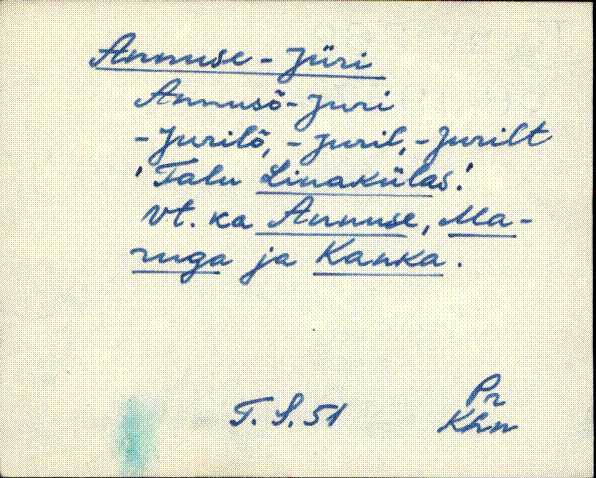 Annuse-Jüri
Annusõ-Juri
-Jurilõ, -Juril, -Jurilt
'Talu Linakülas'.
vt. ka Annuse, Ma-
ruga ja Kanka.
T. S. 51
Pr
Khn